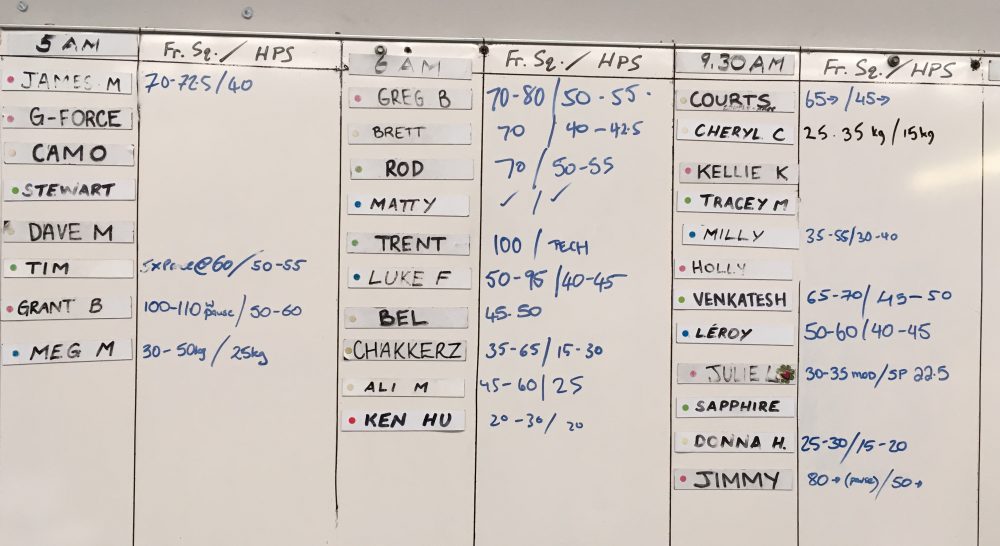 5 AM Fr. Sq. / HPS
JAMES M 70-72.5/40
G-FORCE
CAMO
STEWART
DAVE M
TIM @60/50-55
GRANT B 100-110 w pause/50-60
MEG M 30-50kg/25kg
6 AM Fr. Sq. / HPS
GREG B 70-80/50-55
BRETT 70/40-42.5
ROD 70/50-55
MATTY ✓/✓
TRENT 100/TECH
LUKE F 50-95/40-45
BEL 45-50
CHAKKERZ 35-65/15-30
ALI M 45-60/25
KEN HU 20-30/20
9.30 AM Fr. Sq. / HPS
COURTS 65→/45→
CHERYL C 25.35 kg/15kg
KELLIE K
TRACEY M
MILLY 35-55/30-40
HOLLY
VENKATESH 65-70/45-50
LÉROY 50-60/40-45
JULIE L 30-35 MOD/SP 22.5
SAPPHIRE
DONNA H. 25-30/15-20
JIMMY 80→(pause)/50→